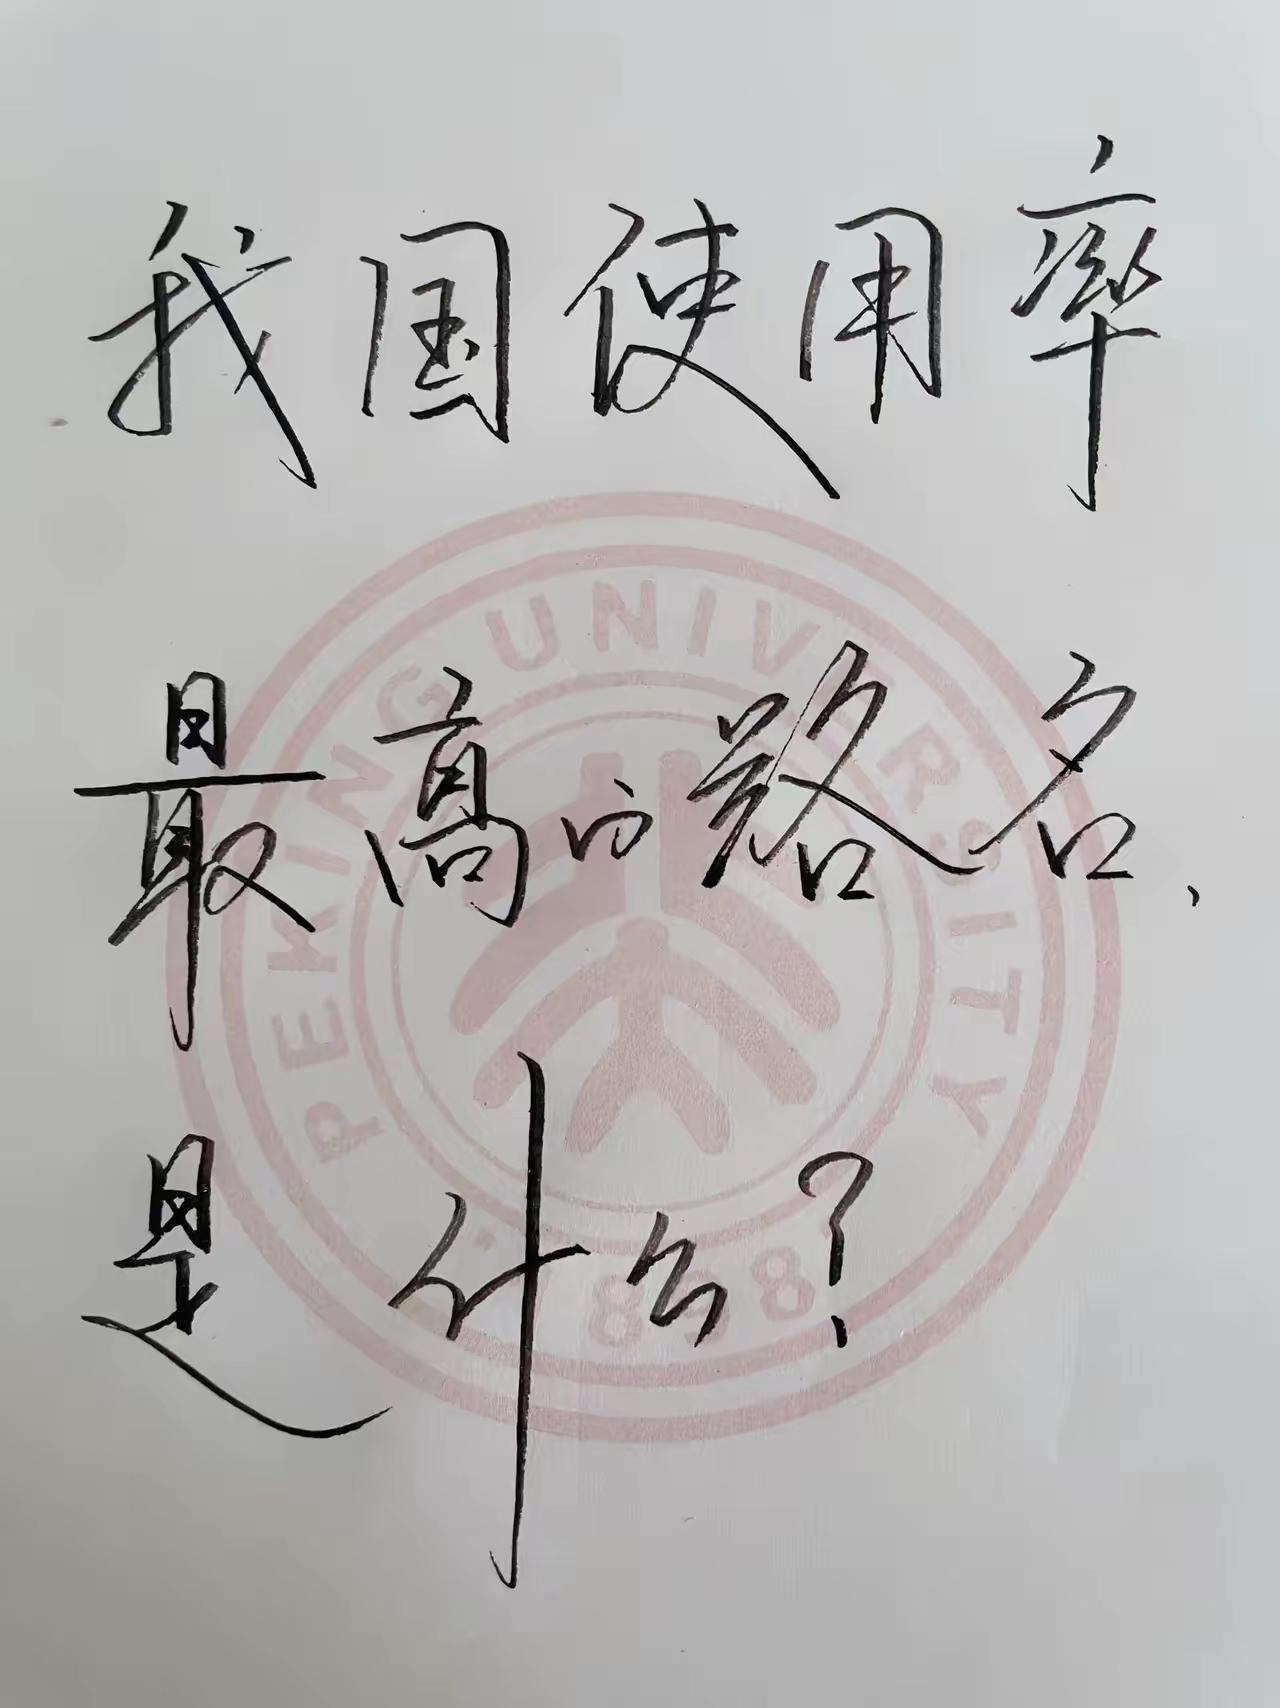 我国使用率
最高的路名,
是什么?
PEKING UNIVERSITY
1898